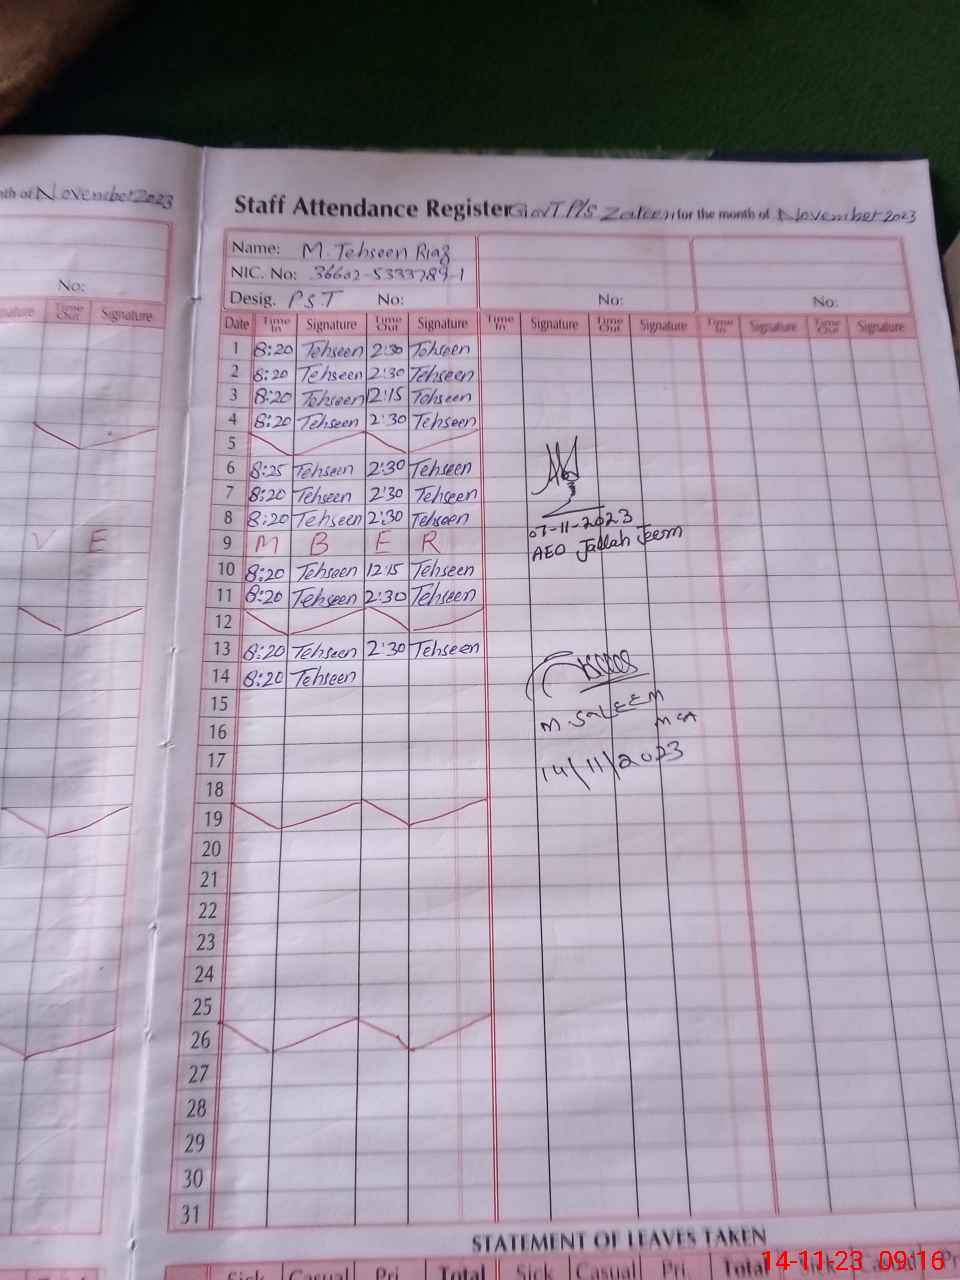 nth of November 2023
No:
nature Time Out Signature
V E
Staff Attendance Register Govt P/S for the month of November 2023
Name: M. Tehseen Riaz
NIC. No: 36602-5333789-1
Desig. PST No: No: No:
Date Time In Signature Time Out Signature Time In Signature Time Out Signature Time In Signature Time Out Signature
1 8:20 Tehseen 2:30 Tehseen
2 8:20 Tehseen 2:30 Tehseen
3 8:20 Tehseen 12:15 Tehseen
4 8:20 Tehseen 2:30 Tehseen
5
6 8:25 Tehseen 2:30 Tehseen
7 8:20 Tehseen 2:30 Tehseen
8 8:20 Tehseen 2:30 Tehseen
07-11-2023
9 M B E R
AEO Jallah Jeem
10 8:20 Tehseen 12:15 Tehseen
11 8:20 Tehseen 2:30 Tehseen
12
13 8:20 Tehseen 2:30 Tehseen
14 8:20 Tehseen
15
M. SALEEM
16
MEA
17
14/11/2023
18
19
20
21
22
23
24
25
26
27
28
29
30
31
STATEMENT OF LEAVES TAKEN
Sick Casual Pri. Total Sick Casual Pri. Total Sick Casual Pr
14-11-23 09:16